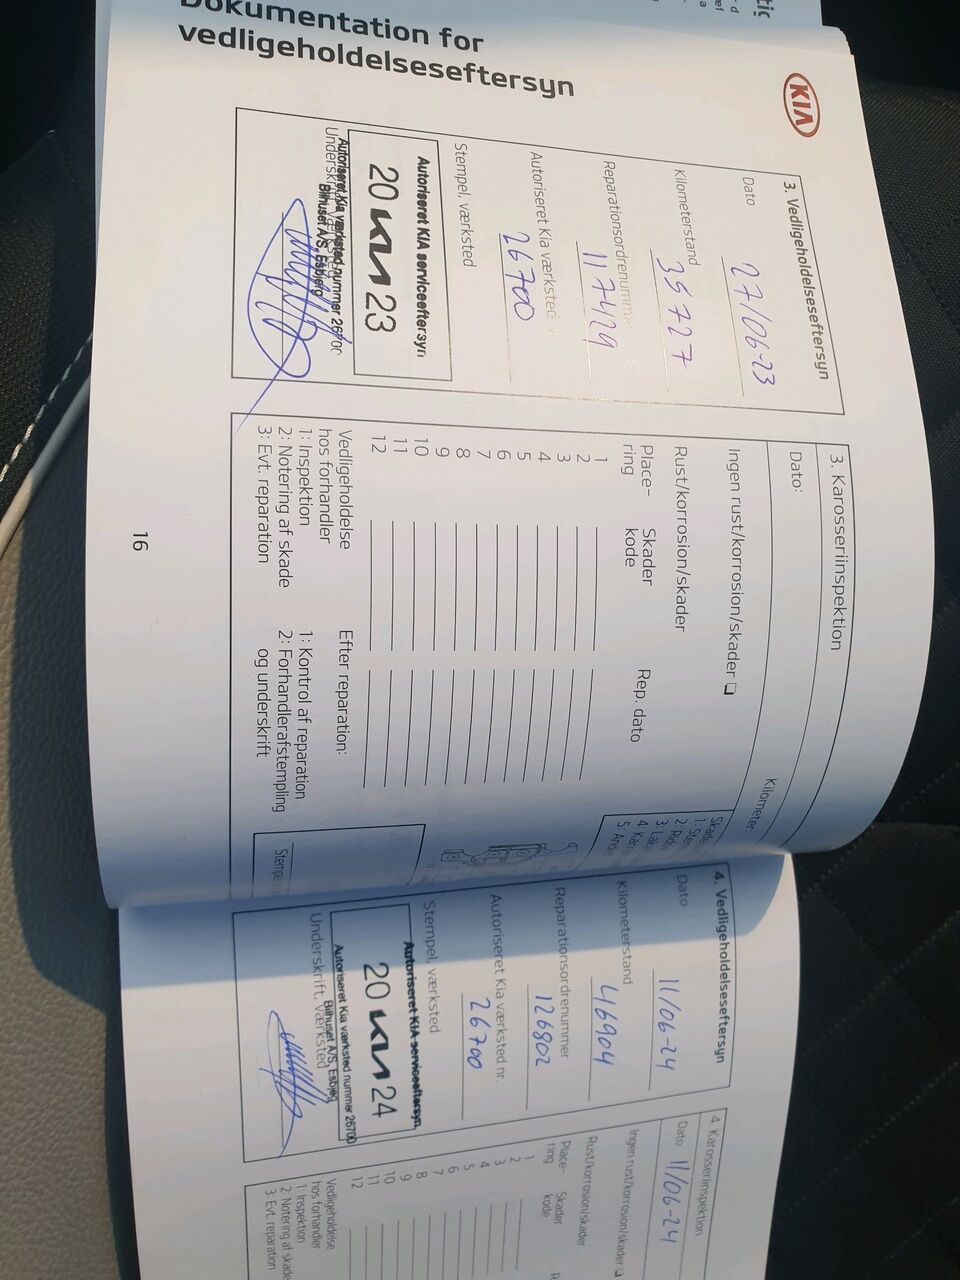 Dokumentation for
vedligeholdelseseftersyn
KIA
3. Vedligeholdelseseftersyn
Dato
27/06-23
Kilometerstand
35727
Reparationsordrenummer
117429
Autoriseret Kia værksted
26700
Stempel, værksted
Autoriseret KIA serviceeftersyn
20 KIA 23
Autoriseret Kia værksted nummer 26700
Bilhuset A/S, Esbjerg
Underskrift, værksted
3. Karosseriinspektion
Dato:
Kilometer
Ingen rust/korrosion/skader ❑
Rust/korrosion/skader
Place-
ring
Skader
kode
Rep. dato
1
2
3
4
5
6
7
8
9
10
11
12
Vedligeholdelse
hos forhandler
1: Inspektion
2: Notering af skade
3: Evt. reparation
Efter reparation:
1: Kontrol af reparation
2: Forhandlerafstempling
og underskrift
Stempel
16
4. Vedligeholdelseseftersyn
Dato
11/06-24
Kilometerstand
46904
Reparationsordrenummer
126802
Autoriseret Kia værksted nr.
26700
Stempel, værksted
Autoriseret KIA serviceeftersyn
20 KIA 24
Autoriseret Kia værksted nummer 26700
Bilhuset A/S, Esbjerg
Underskrift, værksted
4. Karosseriinspektion
Dato 11/06-24
Ingen rust/korrosion/skader ❑
Rust/korrosion/skader
Place-
ring
Skader
kode
R
1
2
3
4
5
6
7
8
9
10
11
12
Vedligeholdelse
hos forhandler
1 Inspektion
2 Notering af skade
3 Evt. reparation